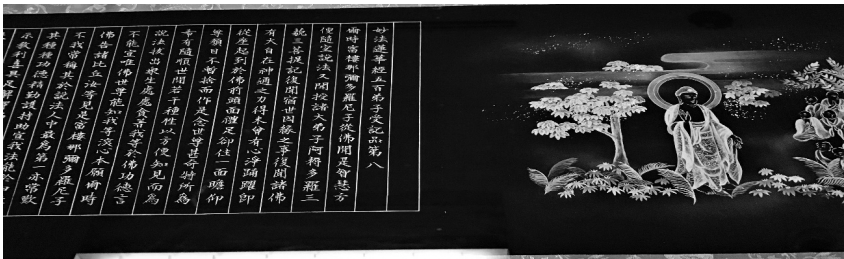 妙法蓮華經五百弟子受記品第八
爾時富樓那彌多羅尼子從佛聞是智慧方
便隨宜說法又聞授諸大弟子阿耨多羅三
藐三菩提記復聞宿世因緣之事復聞諸佛
有大自在神通之力得未曾有心淨踊躍即
從座起到於佛前頭面禮足却住一面瞻仰
尊顏目不暫捨而作是念世尊甚奇特所為
希有隨順世間若干種性以方便知見而為
說法拔出眾生處處貪著我等於佛功德言
不能宣唯佛世尊能知我等深心本願爾時
佛告諸比丘汝等見是富樓那彌多羅尼子
不我常稱其於說法人中最為第一亦常歎
其種種功德精勤護持助宣我法能於四眾
示教利喜具足解釋